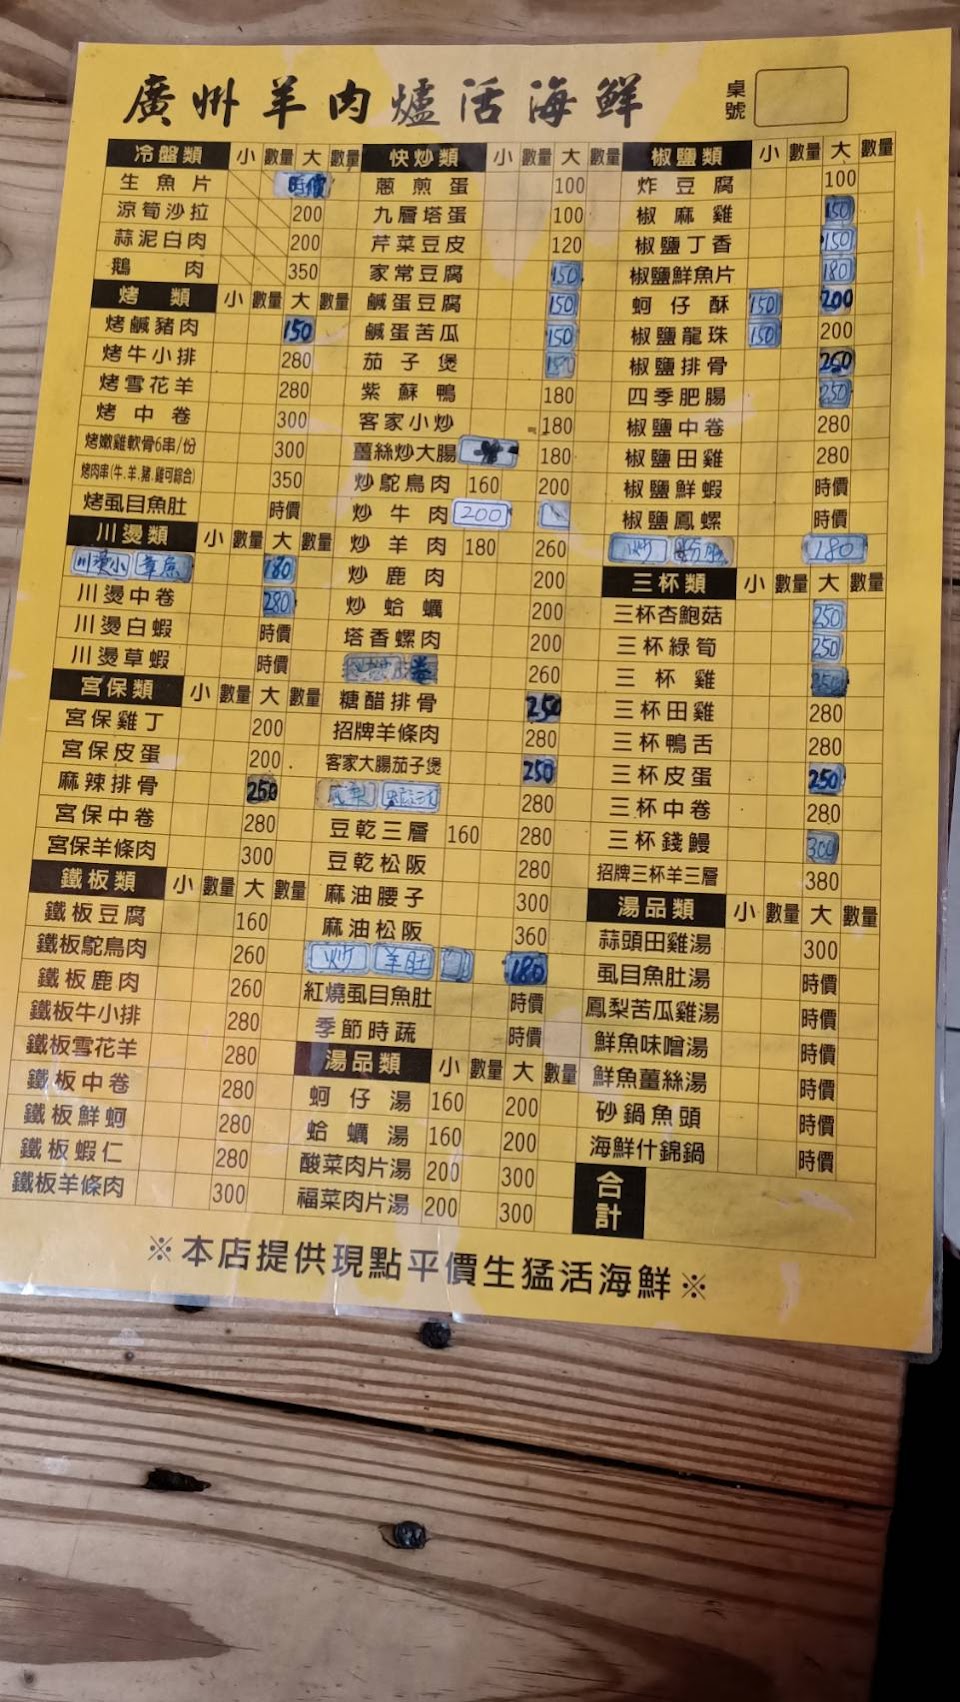 廣州羊肉爐活海鮮
桌號
冷盤類 小 數量 大 數量
生魚片 時價
涼筍沙拉 200
蒜泥白肉 200
鵝肉 350
烤類 小 數量 大 數量
烤鹹豬肉 150
烤牛小排 280
烤雪花羊 280
烤中卷 300
烤嫩雞軟骨6串/份 300
烤肉串(牛.羊.豬.雞可綜合) 350
烤虱目魚肚 時價
川燙類 小 數量 大 數量
川燙小章魚 180
川燙中卷 280
川燙白蝦 時價
川燙草蝦 時價
宮保類 小 數量 大 數量
宮保雞丁 200
宮保皮蛋 200
麻辣排骨 250
宮保中卷 280
宮保羊條肉 300
鐵板類 小 數量 大 數量
鐵板豆腐 160
鐵板鴕鳥肉 260
鐵板鹿肉 260
鐵板牛小排 280
鐵板雪花羊 280
鐵板中卷 280
鐵板鮮蚵 280
鐵板蝦仁 280
鐵板羊條肉 300
快炒類 小 數量 大 數量
蔥煎蛋 100
九層塔蛋 100
芹菜豆皮 120
家常豆腐 150
鹹蛋豆腐 150
鹹蛋苦瓜 150
茄子煲 180
紫蘇鴨 180
客家小炒 180
薑絲炒大腸 180
炒鴕鳥肉 160 200
炒牛肉 200
炒羊肉 180 260
炒鹿肉 200
炒蛤蠣 200
塔香螺肉 200
260
糖醋排骨 250
招牌羊條肉 280
客家大腸茄子煲 250
280
豆乾三層 160 280
豆乾松阪 280
麻油腰子 300
麻油松阪 360
炒羊肚 180
紅燒虱目魚肚 時價
季節時蔬 時價
湯品類 小 數量 大 數量
蚵仔湯 160 200
蛤蠣湯 160 200
酸菜肉片湯 200 300
福菜肉片湯 200 300
椒鹽類 小 數量 大 數量
炸豆腐 100
椒麻雞 150
椒鹽丁香 150
椒鹽鮮魚片 180
蚵仔酥 150 200
椒鹽龍珠 150 200
椒鹽排骨 250
四季肥腸 250
椒鹽中卷 280
椒鹽田雞 280
椒鹽鮮蝦 時價
椒鹽鳳螺 時價
炒 180
三杯類 小 數量 大 數量
三杯杏鮑菇 250
三杯綠筍 250
三杯雞 250
三杯田雞 280
三杯鴨舌 280
三杯皮蛋 250
三杯中卷 280
三杯錢鰻 300
招牌三杯羊三層 380
湯品類 小 數量 大 數量
蒜頭田雞湯 300
虱目魚肚湯 時價
鳳梨苦瓜雞湯 時價
鮮魚味噌湯 時價
鮮魚薑絲湯 時價
砂鍋魚頭 時價
海鮮什錦鍋 時價
合計
※本店提供現點平價生猛活海鮮※